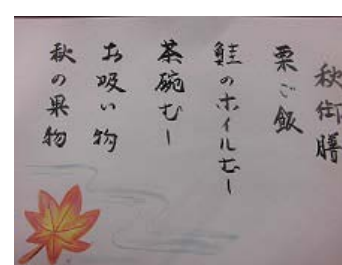 秋御膳
栗ご飯
鮭のホイルむし
茶碗むし
お吸い物
秋の果物